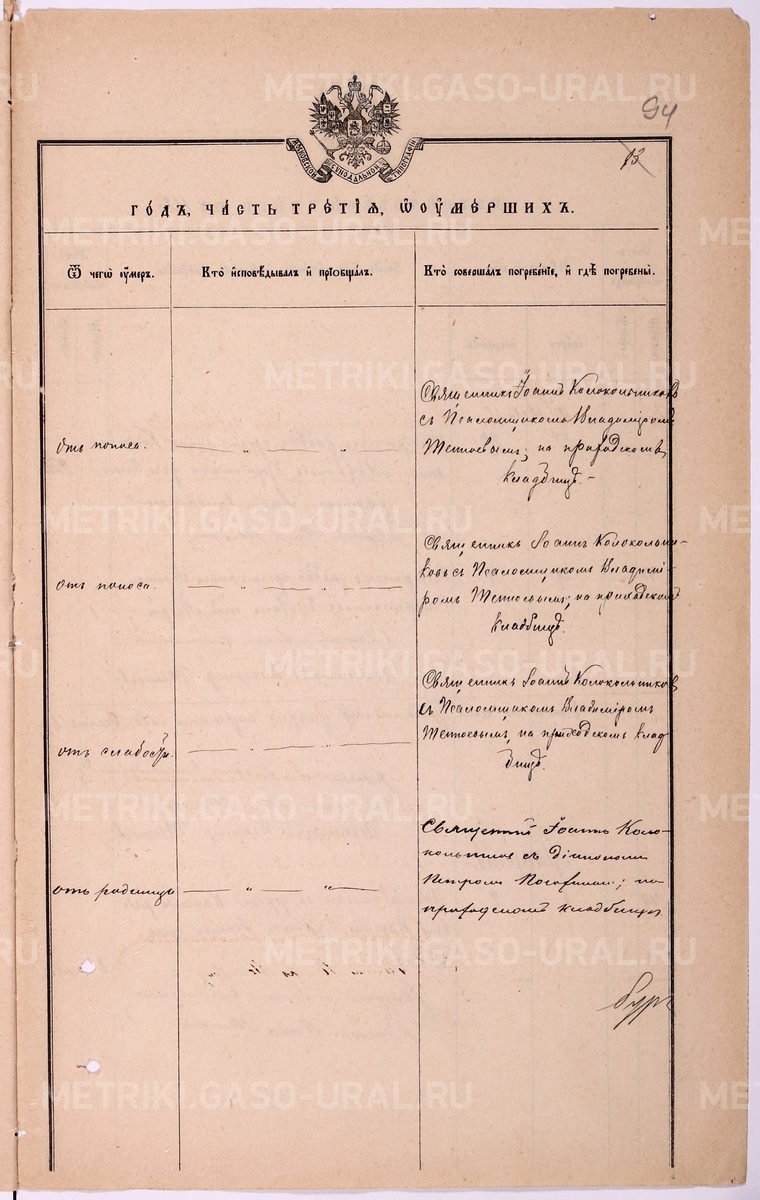 METRIKI.GASO-URAL.RU
94
13
МОСКОВСКОЙ СѴНОДАЛЬНОЙ ТИПОГРАФІИ
го́дъ, ча́сть тре́тїѧ, ѡ҆ оу҆ме́ршихъ.
Ѿ чегѡ̀ оу҆́меръ.
Кто̀ и҆сповѣ́дывалъ и҆ прїѡбща́лъ.
Кто̀ соверша́лъ погребе́нїе, и҆ гдѣ̀ погребены̀.
Отъ поноса.
Священникъ Іоаннъ Колокольниковъ
съ Псаломщикомъ Владиміромъ
на приходскомъ
кладбищѣ.-
отъ поноса.
Священникъ Іоаннъ Колокольни-
ковъ съ Псаломщикомъ Владимі-
ромъ на приходскомъ
кладбищѣ.
отъ слабости.
Священникъ Іоаннъ Колокольниковъ
съ Псаломщикомъ Владиміромъ
на приходскомъ клад
бищѣ.
отъ родимца
Священникъ Іоаннъ Коло-
кольниковъ съ Діакономъ
Петромъ на
приходскомъ кладбищѣ